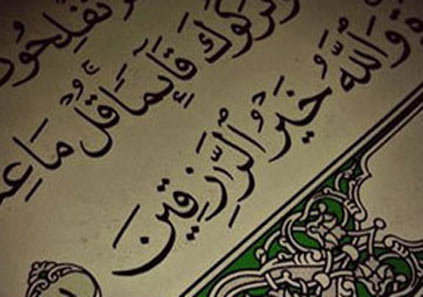 تُفْلِحُونَ
وَتَرَكُوكَ قَآئِمًا قُلْ مَا عِندَ
وَٱللَّهُ خَيْرُ ٱلرَّٰزِقِينَ